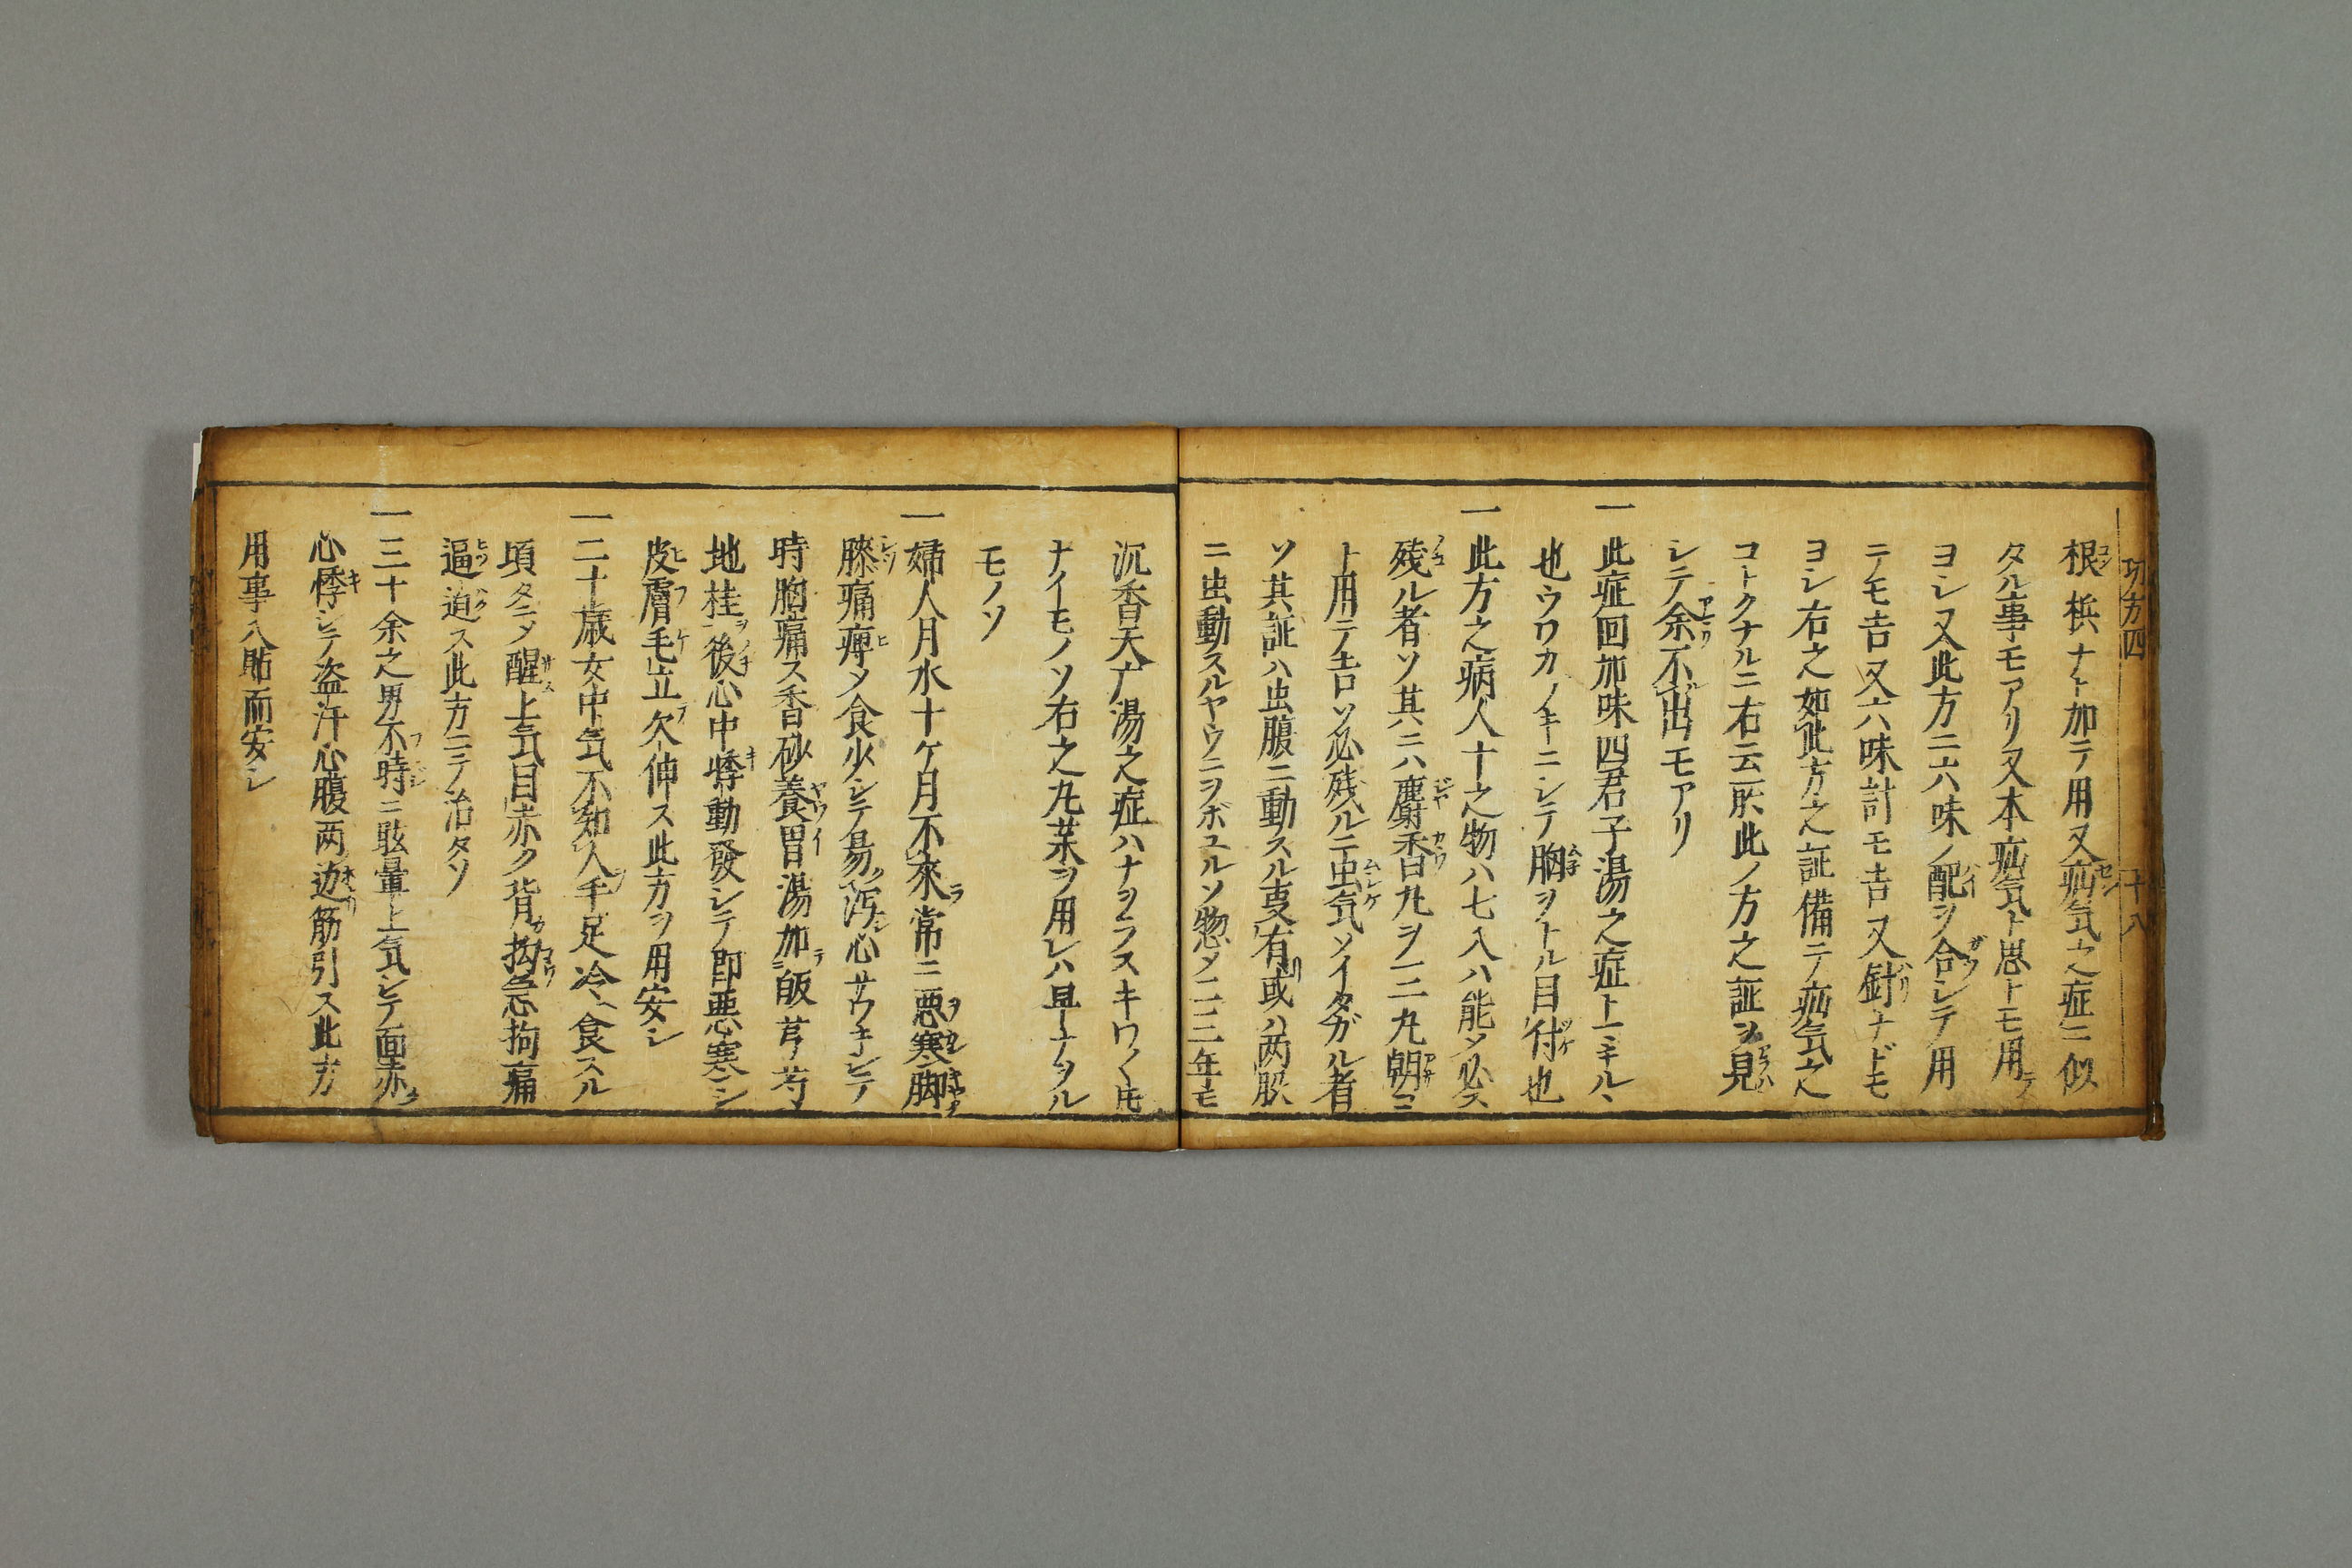 功方四 十八
根梹ナト加テ用又疝気之症ニ似
タル事モアリ又本疝気ト思トモ用テ
ヨシ又此方ニ六味ノ配ヲ合シテ用
テモ吉又六味計モ吉又針ナドモ
ヨシ右之如此方之証備テ疝気之
コトクナルニ右云所此ノ方之証ヲ見
シテ余不出モアリ
一此症回加味四君子湯之症ト一ミキル
也ウワカノキニシテ胸ヲトル目付也
一此方之病人十之物ハ七八ハ能メ必ス
残ル者ソ其ニハ麝香丸ヲ一二丸朝ニ
ト用テ吉ソ必残ルニ虫気ソイタガル者
ソ其証ハ虫腹ニ動スル事有或ハ两股
ニ虫動スルヤウニヲボユルソ惣メ二三年モ
沉香天广湯之症ハナヲラスキワく
ナイモノソ右之丸薬ヲ用レハ早ナヲル
モノソ
一婦人月水十ケ月不來常ニ悪寒脚
膝痛痺メ食少シテ易泻心サワキシテ
時胸痛ス香砂養胃湯加皈芎芍
地桂後心中悸動發シテ即悪寒シ
皮膚毛立欠伸ス此方ヲ用安シ
一二十歳女中気不知人手足冷食スル
頃タニメ醒上気目赤ク背拘急拘痛
逼迫ス此方ニテ治タソ
一三十余之男不時ニ眩暈上気シテ面赤ク
心悸シテ盗汗心腹两边筋引ス此方
用事八貼而安シ